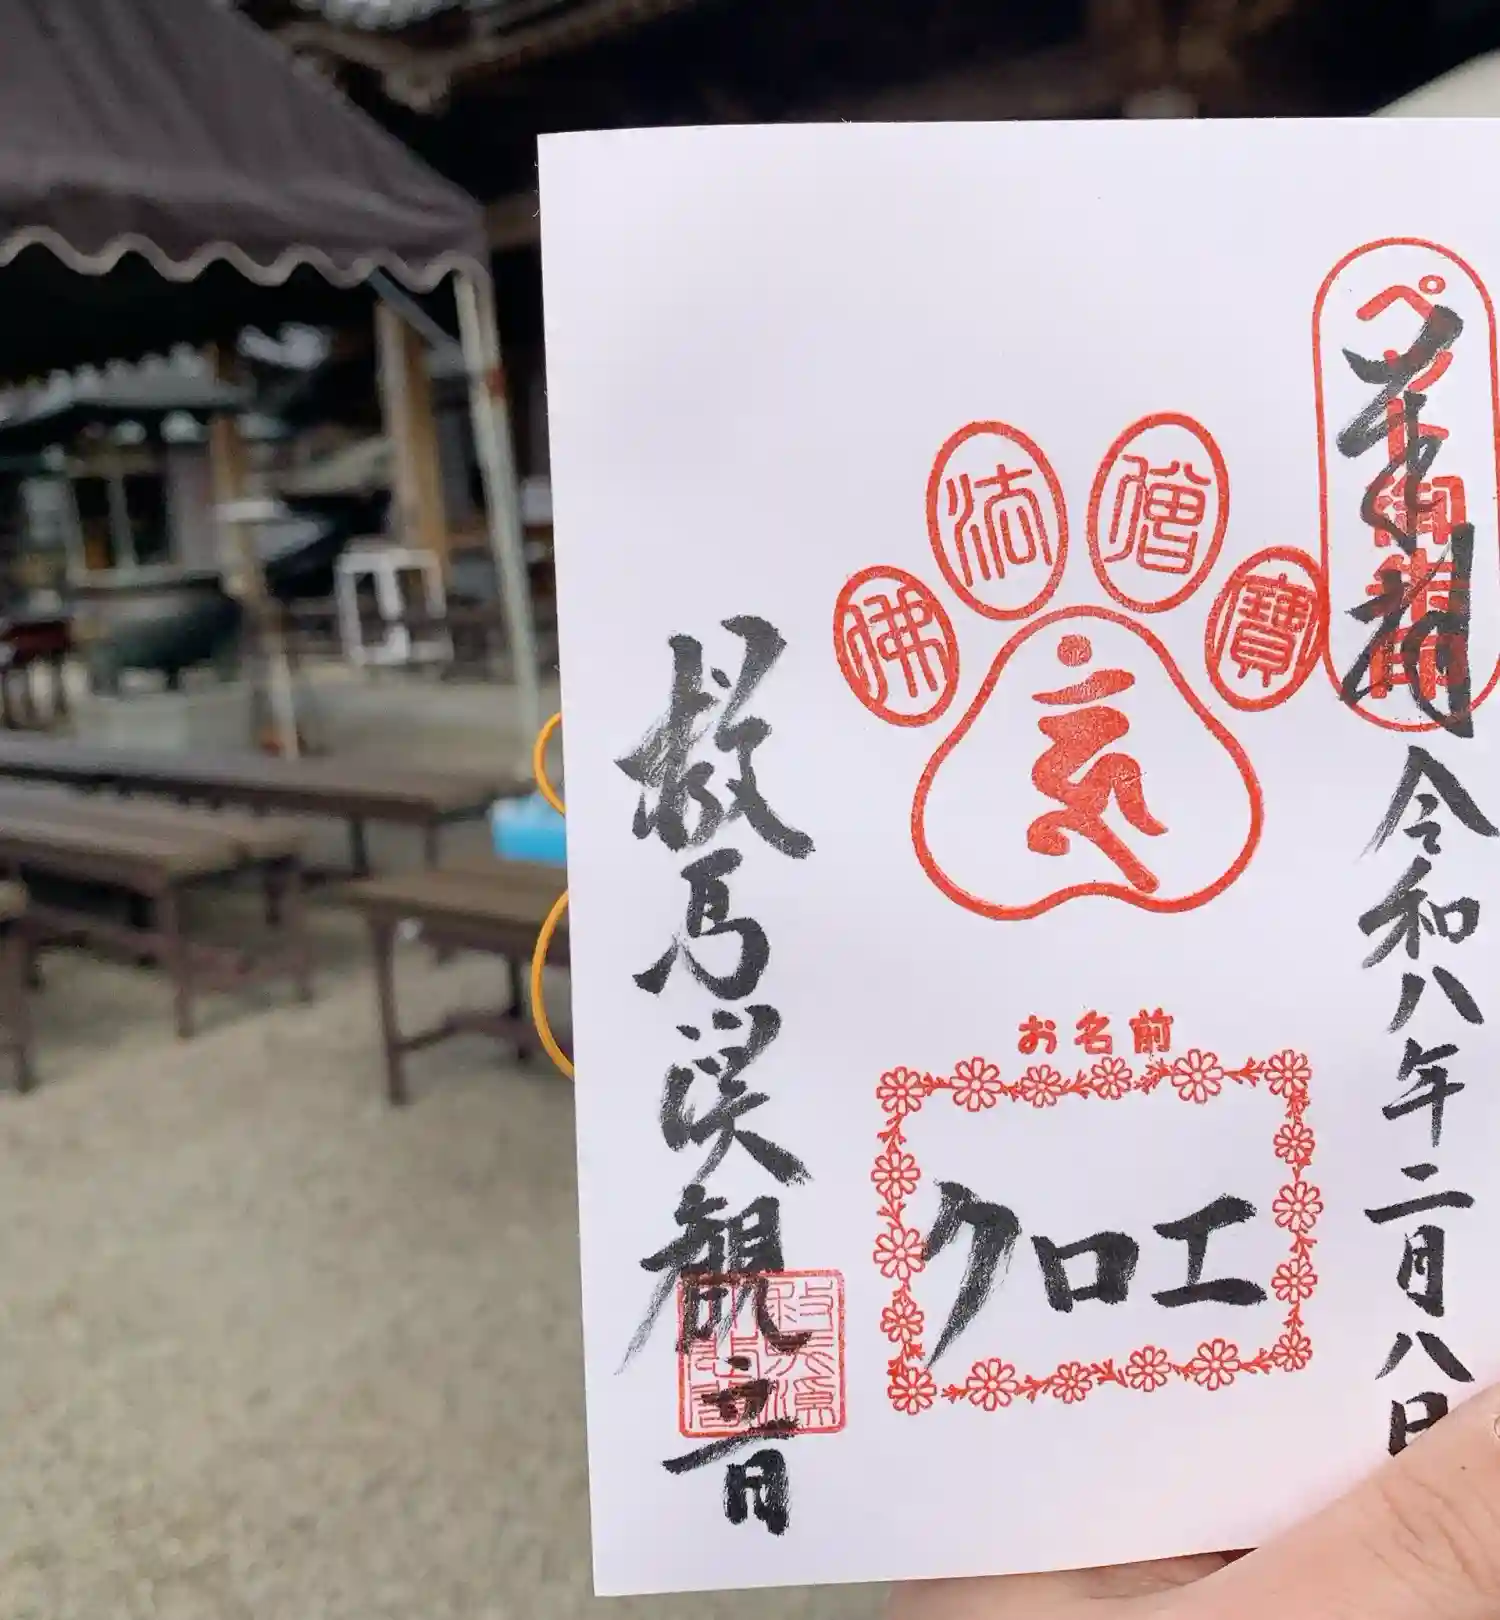 ペット御朱印
奉拝
令和八年二月八日
佛
法
僧
寶
お名前
クロエ
救馬渓観音